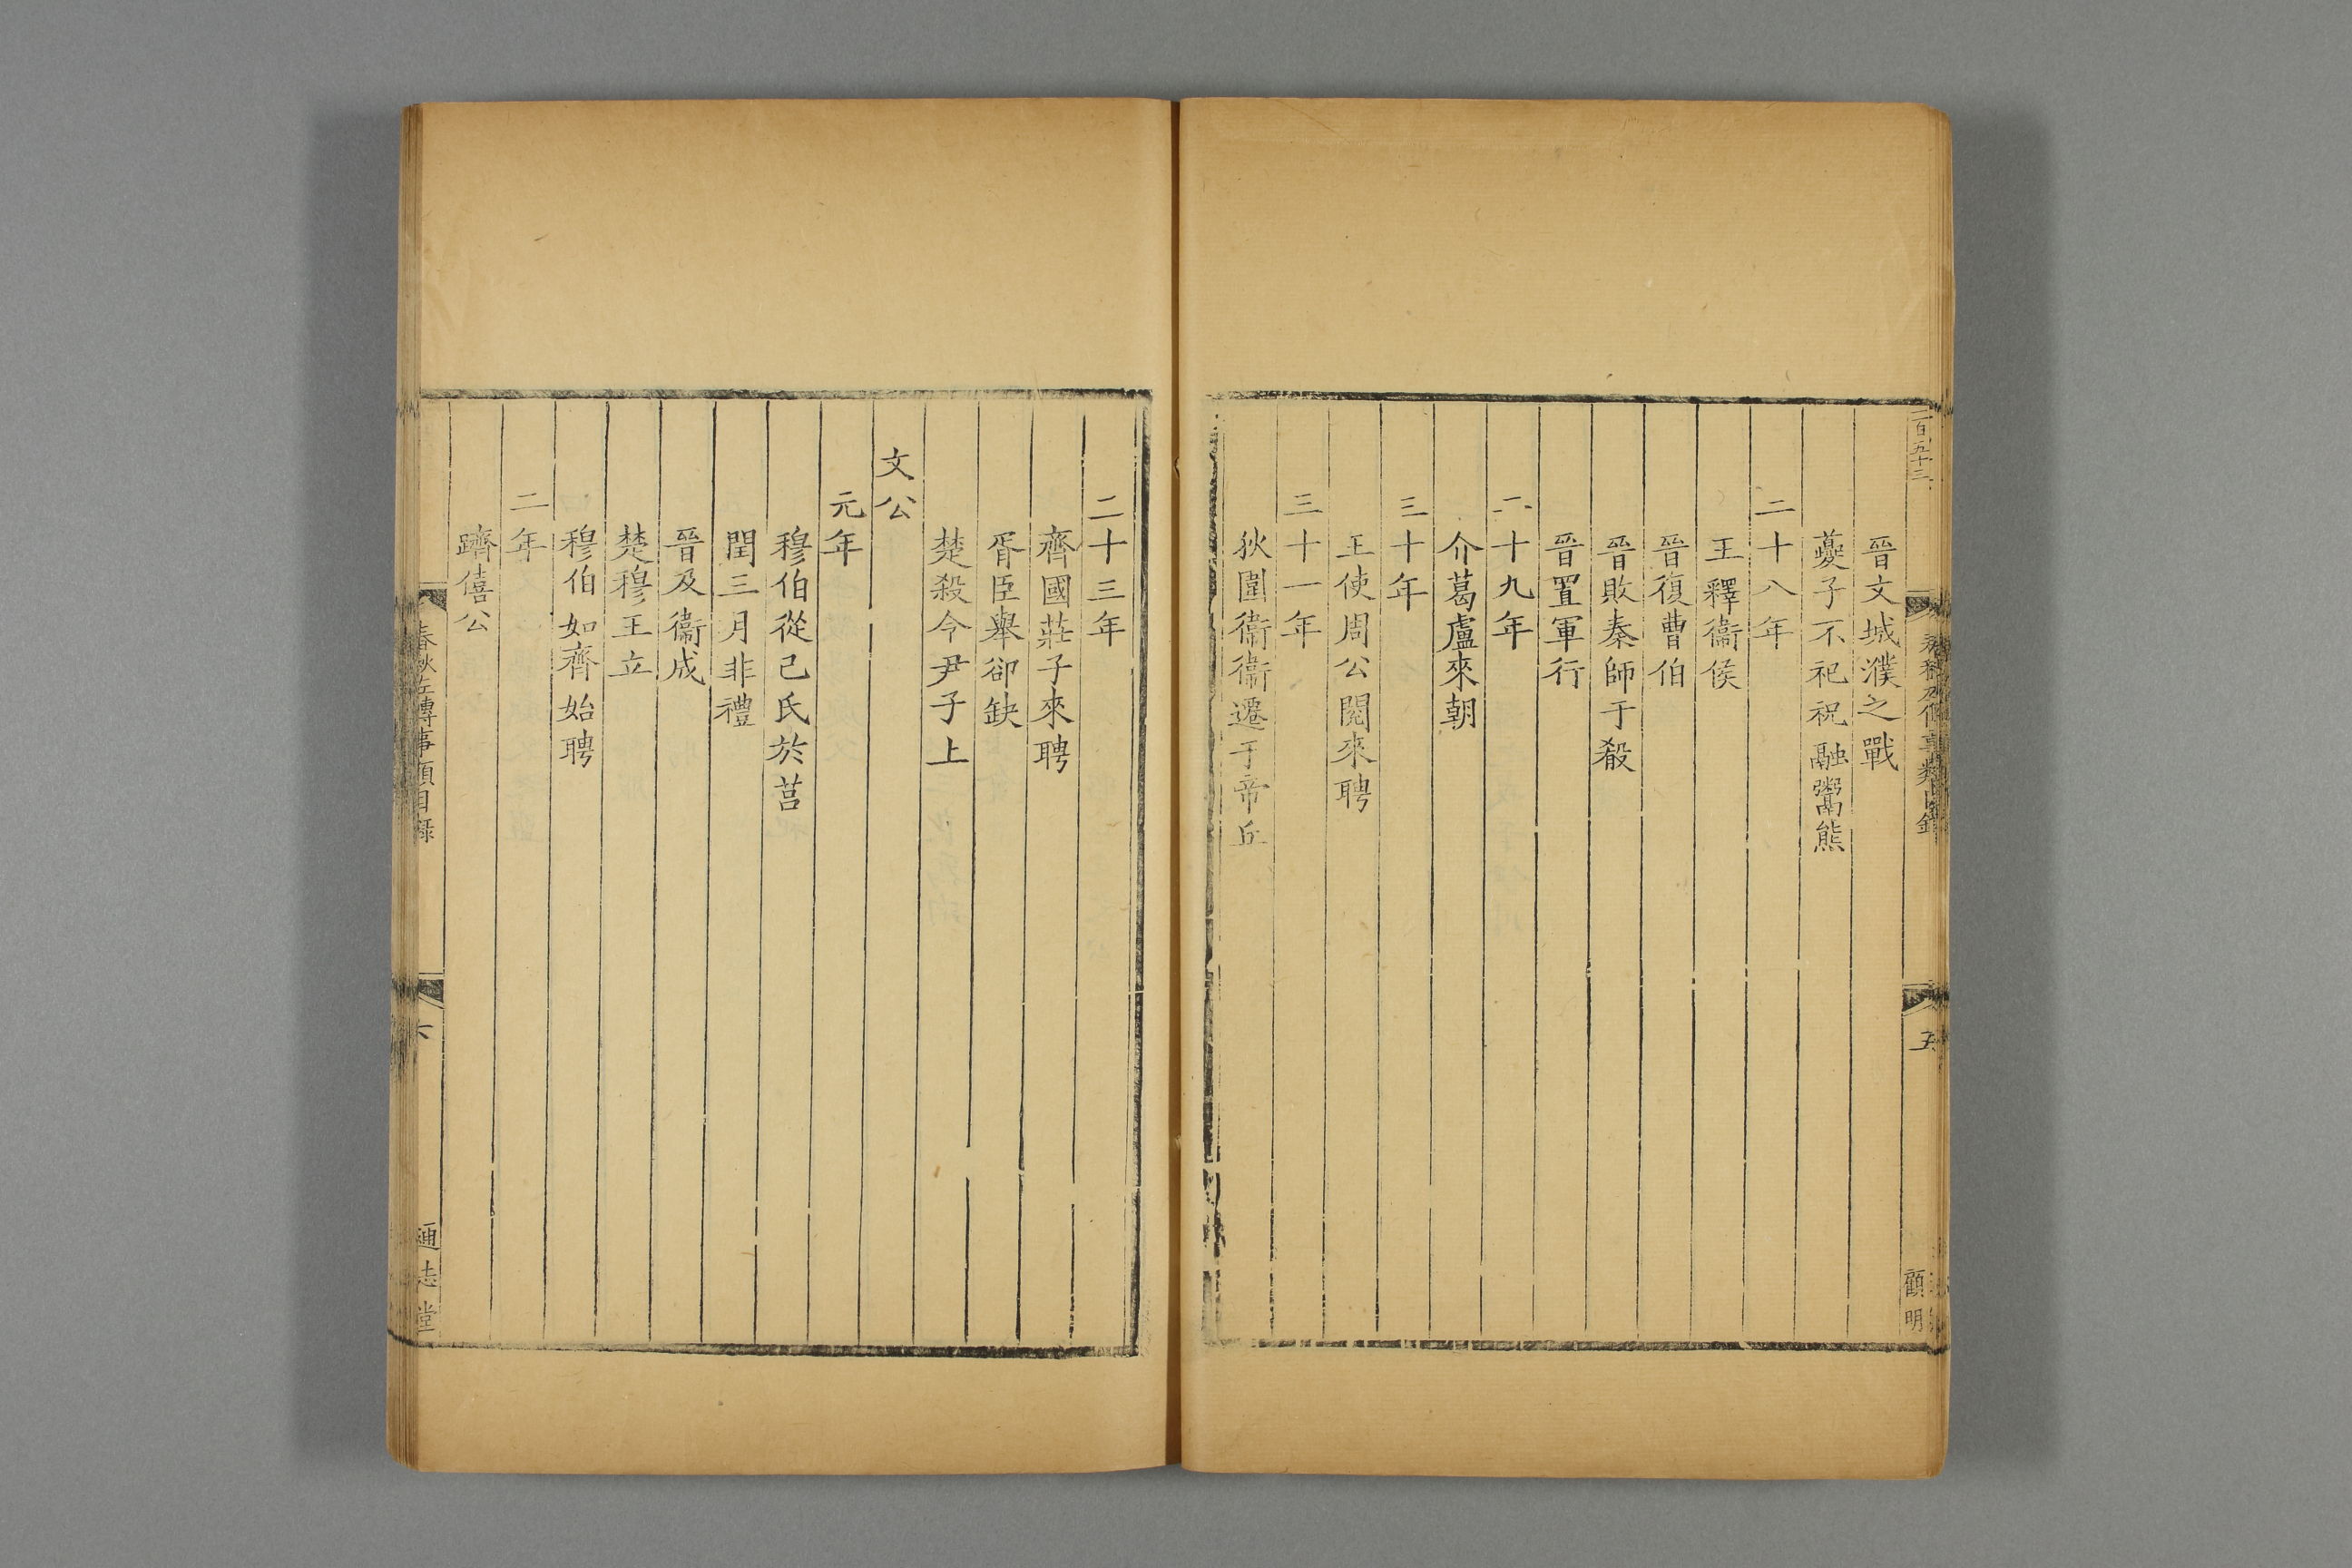 二百五十三
五
顧明
晉文城濮之戰
夔子不祀祝融鬻熊
二十八年
王釋衞侯
晉復曹伯
晉敗秦師于殽
晉置軍行
二十九年
介葛盧來朝
三十年
王使周公閱來聘
三十一年
狄圍衞衞遷于帝丘
二十三年
齊國莊子來聘
胥臣舉卻缺
楚殺令尹子上
文公
元年
穆伯從己氏於莒
閏三月非禮
晉及衞成
楚穆王立
穆伯如齊始聘
二年
躋僖公
春秋左傳事類目錄
六
通志堂